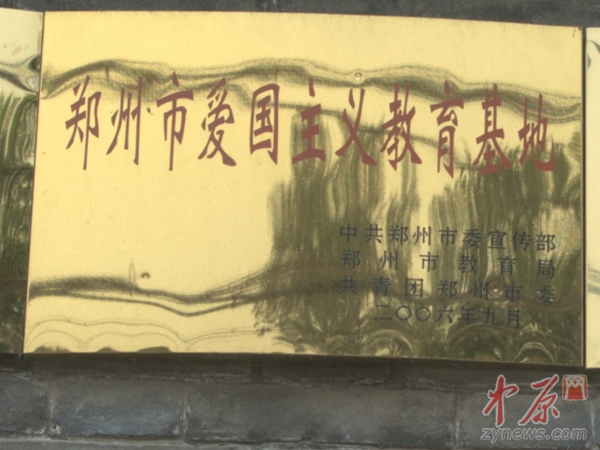 郑州市爱国主义教育基地
中共郑州市委宣传部
郑州市教育局
共青团郑州市委
二〇〇六年九月
中原网
zynews.com